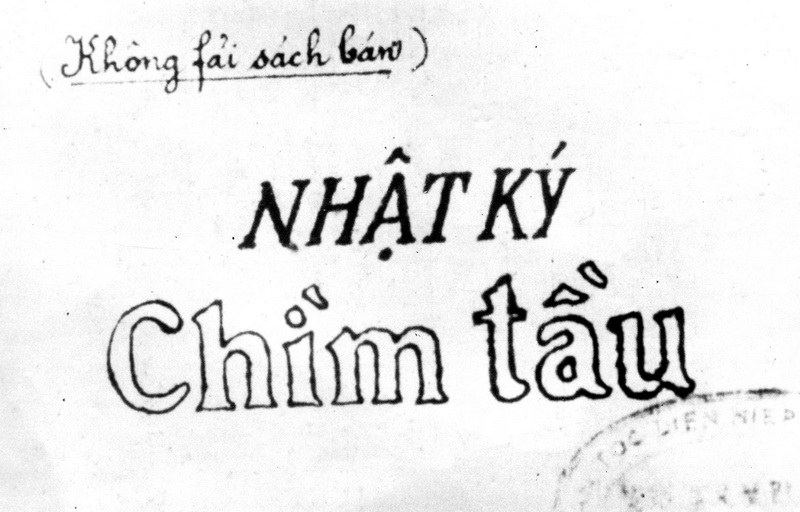 (Không fải sách bán)
NHẬT KÝ
Chìm tầu
LIEN HIEP